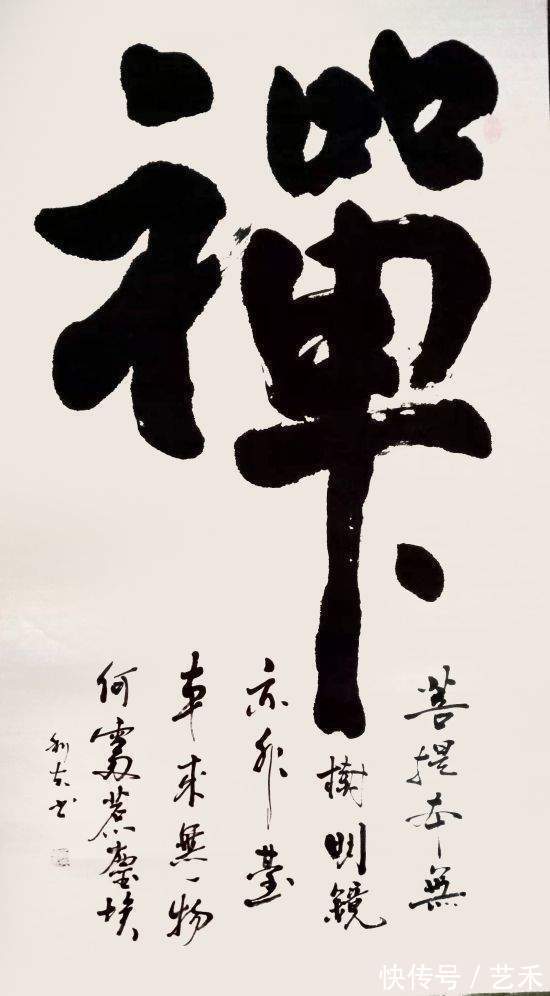 禪
菩提本無
樹明鏡
亦非臺
本來無一物
何處惹塵埃
书
快传号 / 艺禾